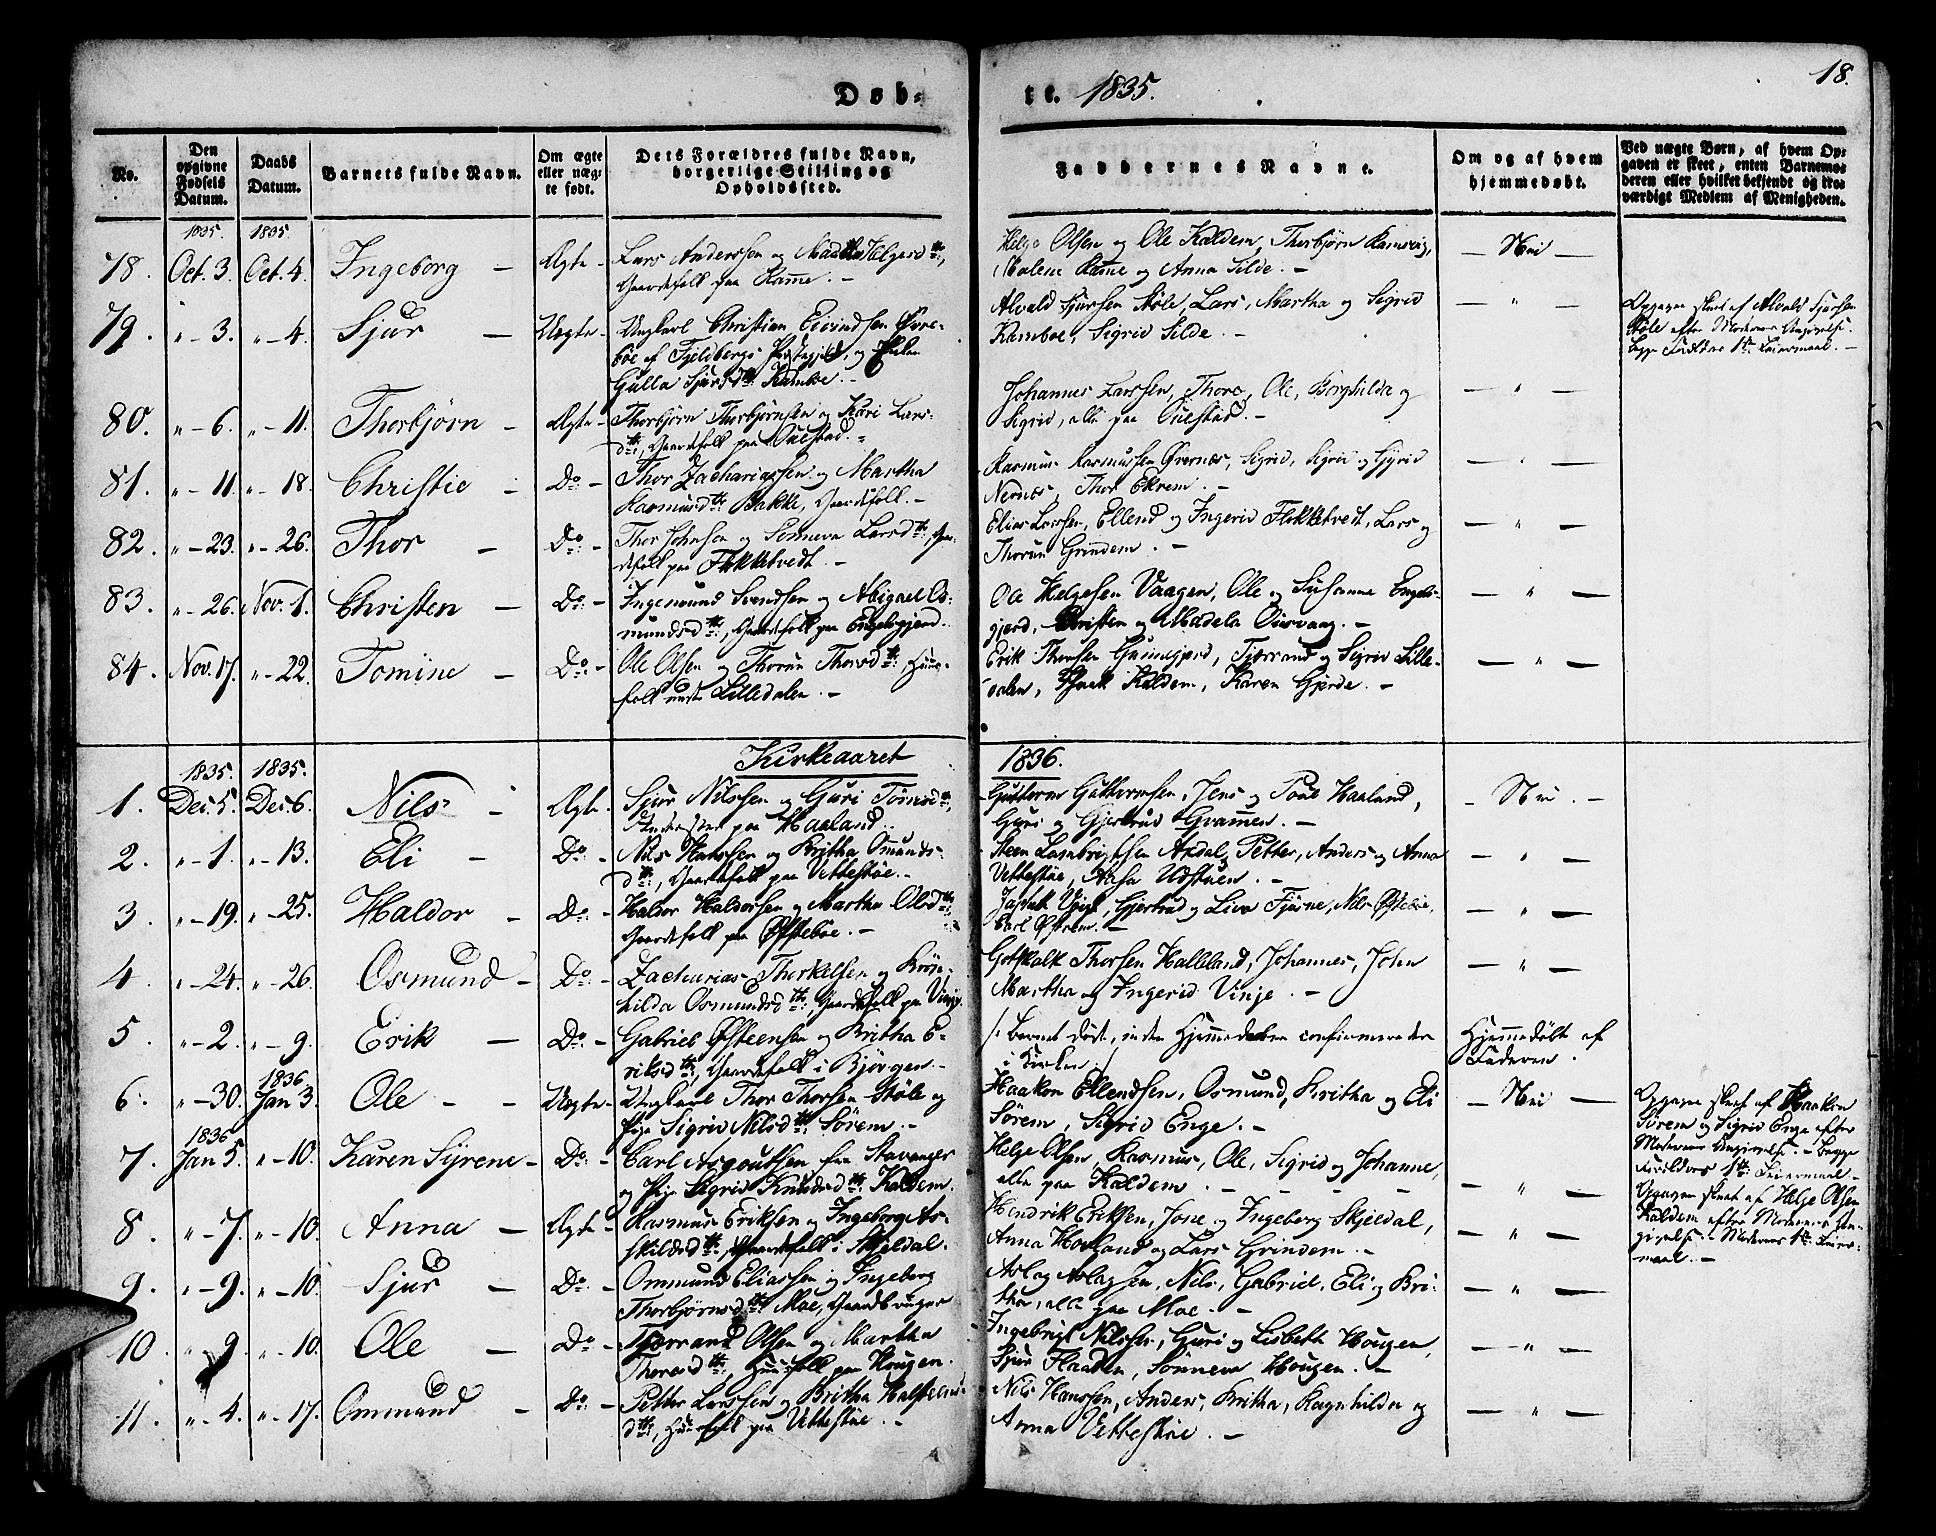 Døb-
te. 1835.
18.
No.
Den opgivne Fødsels Datum.
Daabs Datum.
Barnets fulde Navn.
Om ægte eller uægte født.
Dets Forældres fulde Navn, borgerlige Stilling og Opholdssted.
Faddernes Navne.
Om og af hvem hjemmedøbt.
Ved uægte Børn, af hvem Opgaven er skeet, enten Barnemoderen eller hvilket bekjendt og troværdigt Medlem af Menigheden.
1835. 1835.
78. Oct. 3. Oct. 4. Ingeborg - Ægte - Lars Anderssen og Helgesd:,
Gaardefolk paa Ramme. -
Helge Olsen og Ole Kaldem, Thorbjørn Ramsvig,
Malene Ramme og Anna Silde. -
- Nei -
79. " - 3. " - 4. Sjur - Uægte - Ungkarl Christian Eivindsen Øvre-
bøe af Fjeldbergs Præstegjeld, og
Gulla Sjursd: Ramboe. -
Alvald Sjursen Støle, Lars, Martha og Sigrid
Ramboe, Sigrid Silde. -
- " -
Opgaven skeet af Alvald Sjursen
Støle efter Moderens Angivelse.
Begge Forældres 1ste Leiermaal. -
80. " - 6. " - 11. Thorbjørn - Ægte - Thorbjørn Thorbjørnsen og Kari Lars-
d:, Gaardefolk paa
Johannes Larssen, Thore, Ole, Borghilda og
Sigrid, alle paa
- " -
81. " - 11. " - 18. Christie - Do - Thor Zachariassen og Martha
Rasmusd: Bakke, Gaardefolk. -
Rasmus Rasmussen Øvernes, Sigrid, Sigrid og Gyrid
Nernes, Thor Ekrem. -
- " -
82. " - 23. " - 26. Thor - Do - Thor Johnsen og Sønneva Larsd:, Gaar-
defolk paa Flokketvedt. -
Elias Larssen, Ellend og Ingerid Flokketvedt, Lars og
Thorun Grindem. -
- " -
83. " - 26. Nov. 1. Christen - Do - Ingemund Svendsen og Abigael Os-
mundsd:, Gaardefolk paa Engelsgjerd.
Ole Helgesen Vaagen, Ole og Susanna Engels-
gjerd, Christen og Madela
- " -
84. Nov. 17. " - 22. Tomine - Do - Ole Olsen og Thorun Thorsd:, Huus-
folk under Lilledalen. -
Erik Thorsen Tjerrand og Sigrid Lille-
dalen, Kaldem, Karen Gjerde. -
- " -
Kirkeaaret 1836.
1835. 1835.
1. Dec. 5. Dec. 6. Nils - Ægte - Sjur Nilssen og Guri
paa Haaland.
Guttorm Guttormsen, Jens og Haaland,
Guri og Gjertrud Grammen. -
- Nei. -
2. " - 1. " - 13. Eli - Do - Nils Hanssen og Britha Omunds-
d:, Gaardefolk paa Vettestøe. -
Steen Lambrigtsen Axdal, Petter, Anders og Anna
Vettestøe, Udstuen. -
- " -
3. " - 19. " - 25. Haldor - Do - Haldor Haldorsen og Martha Olsd:
Gaardefolk paa Østebøe. -
Gjertrud og Nils Østebøe,
Carl Østrem. -
- " -
4. " - 24. " - 26. Osmund - Do - Zacharias Thorkelsen og Brøn-
hilda Osmundsd:, Gaardefolk paa Vinje.
Gotskalk Thorsen Halleland, Johannes, John
Martha og Ingerid Vinje. -
- " -
5. " - 2. " - 9. Erik - Do - Gabriel Østeensen og Britha E-
riksd:, Gaardefolk i Bjørgen. -
/: Barnet døde, inden Hjemmedaaben confirmeredes
i Kirken :/
Hjemmedøbt af
Faderen.
1836
6. " - 30. Jan 3. Ole - - Uægte - Ungkarl Thor Thorsen Støle og
Pige Sigrid Nilsd: Sørem. -
Haakon Ellendsen, Osmund, Britha og Eli
Sørem, Sigrid Enge. -
- Nei -
Opgaven skeet af Haakon
Sørem og Sigrid Enge efter
Moderens Angivelse. - Begge
Forældres 1ste Leiermaal. -
1836
7. Jan 5. " - 10. Karen Syrene - Do - Carl Asgoutsen fra Stavanger
og Pige Sigrid Knudsd: Kaldem.
Helge Olsen, Rasmus, Ole, Sigrid og Johanne,
alle paa Kaldem. - - - -
- " -
Opgaven skeet af Helge Olsen
Kaldem efter Moderens An-
givelse. Moderens 1ste Leier-
maal. -
8. " - 7. " - 10. Anna - Ægte - Rasmus Eriksen og Ingeborg As-
kildsd:, Gaardefolk i Skjeldal.
Hendrik Eriksen, Jone og Ingeborg Skjeldal,
Anna Hovland og Lars Grindem. -
- " -
9. " - 9. " - 10. Sjur - Do - Ommund Eliassen og Ingeborg
Thorbjørnsd: Moe, Gaardbruger
Aslag Aslagsen, Nils, Gabriel, Eli og Bri-
tha, alle paa Moe. -
- " -
10. " - 9. " - 10. Ole - Do - Tjerrand Olsen og Martha
Thorsd:, Huusfolk paa Hougen.
Ingebrigt Nilssen, Guri og Lisbeth Hougen,
Sjur Flaaden, Sønneva Hougen. -
- " -
11. " - 4. " - 17. Ommund - Do - Petter Larssen og Britha Halsteens-
d:, Huusfolk paa Vettestøe. -
Nils Hanssen, Anders, Britha, Ragnhilda og
Anna Vettestøe. -
- " -